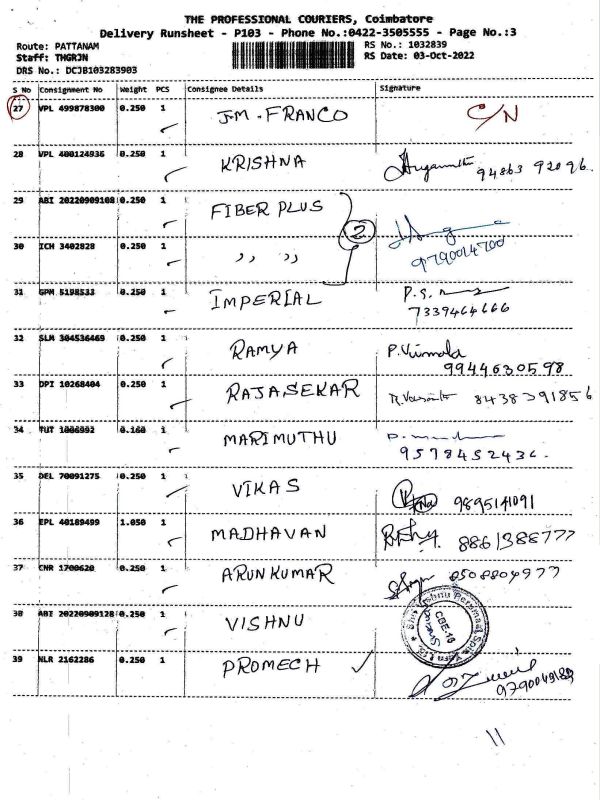 THE PROFESSIONAL COURIERS, Coimbatore
Delivery Runsheet - P103 - Phone No.:0422-3505555 - Page No.:3
Route: PATTANAM RS No.: 1032839
Staff: THGRJN RS Date: 03-Oct-2022
DRS No.: DCJB103283903
S No Consignment No Weight PCS Consignee Details Signature
27 VPL 499878300 0.250 1 J.M. FRANCO C/N
28 VPL 400124936 0.250 1 KRISHNA 94863 92096.
29 ABI 20220909108 0.250 1 FIBER PLUS
2
30 ICH 3402828 0.250 1 ,, ,, 9790014700
31 GPM 5198533 0.250 1 IMPERIAL P.S.
7339464666
32 SLM 304536469 0.250 1 RAMYA P. Vimala
9944630598
33 DPI 10268404 0.250 1 RAJASEKAR 8438391856
34 TUT 1006992 0.160 1 MARIMUTHU
9578452436.
35 DEL 70091275 0.250 1 VIKAS 9895141091
36 EPL 40189499 1.050 1 MADHAVAN 8861388777
37 CNR 1700620 0.250 1 ARUNKUMAR 9508804977
38 ABI 20220909128 0.250 1 VISHNU
CBE-16
39 NLR 2162286 0.250 1 PROMECH
9790049189
11